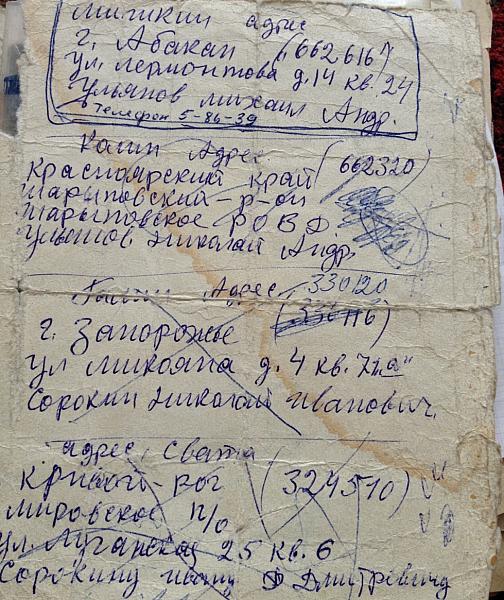 Мишкин адрес
г. Абакан (662616)
ул. Лермонтова д. 14 кв. 24
Ульянов Михаил Андр.
Телефон 5-86-39
Колин Адрес
Красноярский край (662320)
Шарыповский - р-он
Шарыповское РОВД
Ульянов Николай Андр.
Адрес 330120
г. Запорожье
ул Микояна д. 4 кв.
Сорокин Николай Иванович.
адрес Свата
Кривой - рог (324510)
Мировское п/о
ул. Луганская 25 кв. 6
Сорокину Ивану Дмитровичу